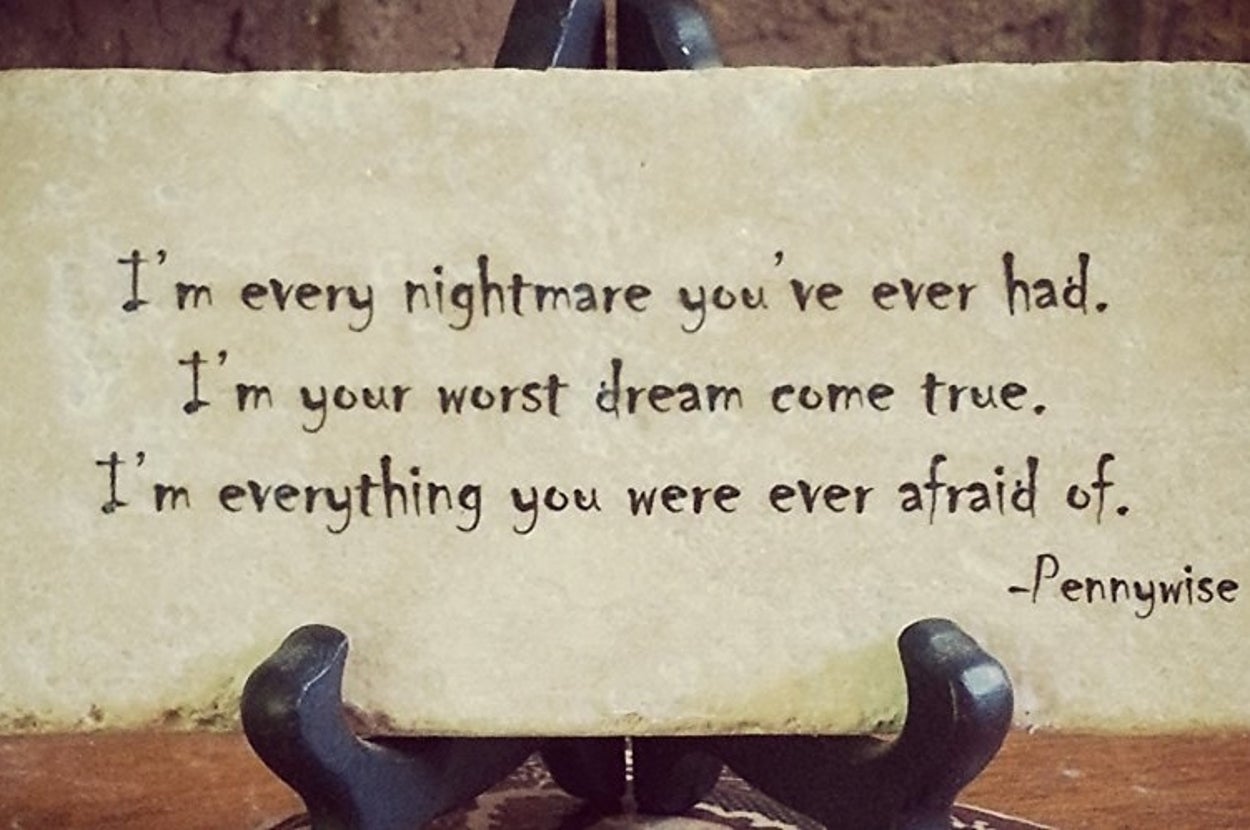 I'm every nightmare you've ever had.
I'm your worst dream come true.
I'm everything you were ever afraid of.
-Pennywise